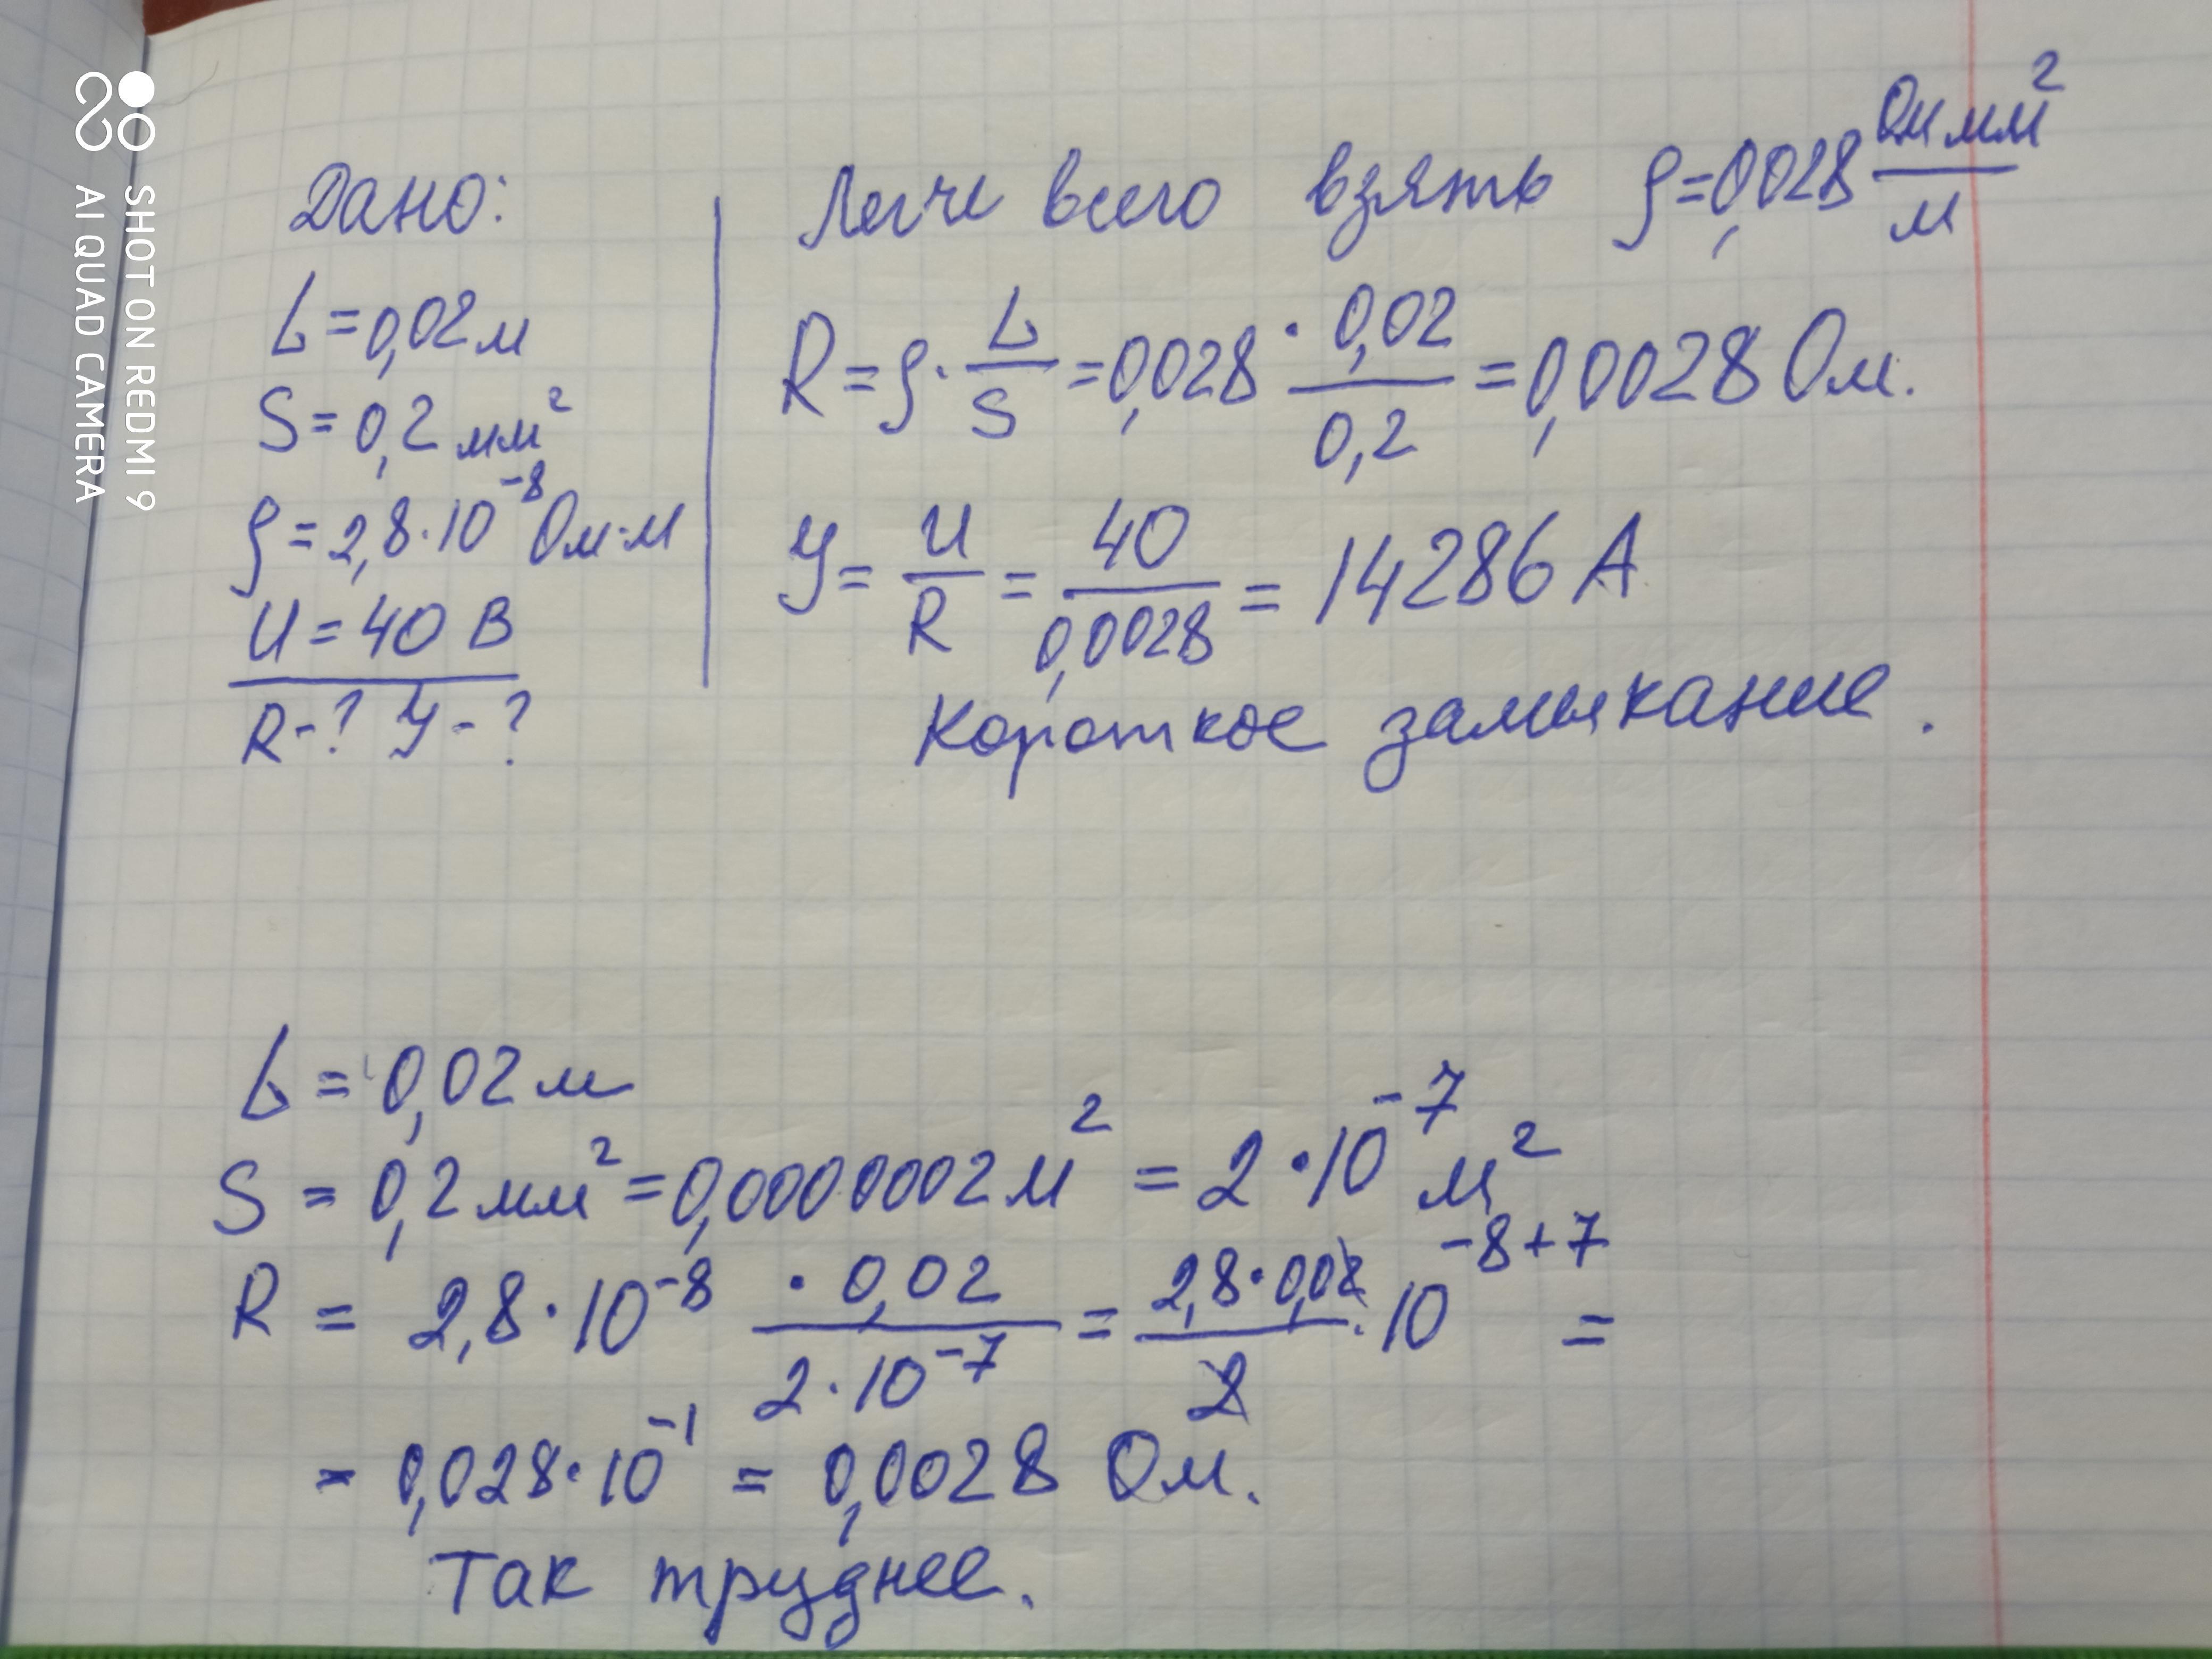 SHOT ON REDMI 9
AI QUAD CAMERA
Дано:
L = 0,02 м
S = 0,2 мм²
ρ = 2,8·10⁻⁸ Ом·м
U = 40 В
R - ? У - ?
Легче всего взять ρ = 0,028 Ом мм²/м
R = ρ · L/S = 0,028 · 0,02/0,2 = 0,0028 Ом.
У = U/R = 40/0,0028 = 14286 А
Короткое замыкание.
L = 0,02 м
S = 0,2 мм² = 0,0000002 м² = 2 · 10⁻⁷ м²
R = 2,8 · 10⁻⁸ · 0,02/2 · 10⁻⁷ = 2,8 · 0,02/2 · 10⁻⁸⁺⁷ =
= 0,028 · 10⁻¹ = 0,0028 Ом.
Так труднее.